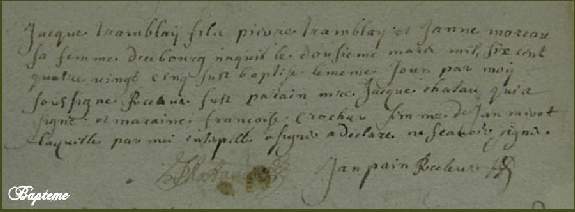 Jacque tramblay filz pierre tramblay et Janne moreau
sa femme de ce bourg naquit le dousieme mars mil six cent
quatre vingt cinq fust baptisé le meme Jour par moy
soussigne Recteur fust parain mre Jacque chatau qui a
signé et maraine francoise crochet femme de Jan nivot
laquelle par moi interpellé a signé a declaré ne scavoir signé.
Jan pain Recteur
Bapteme